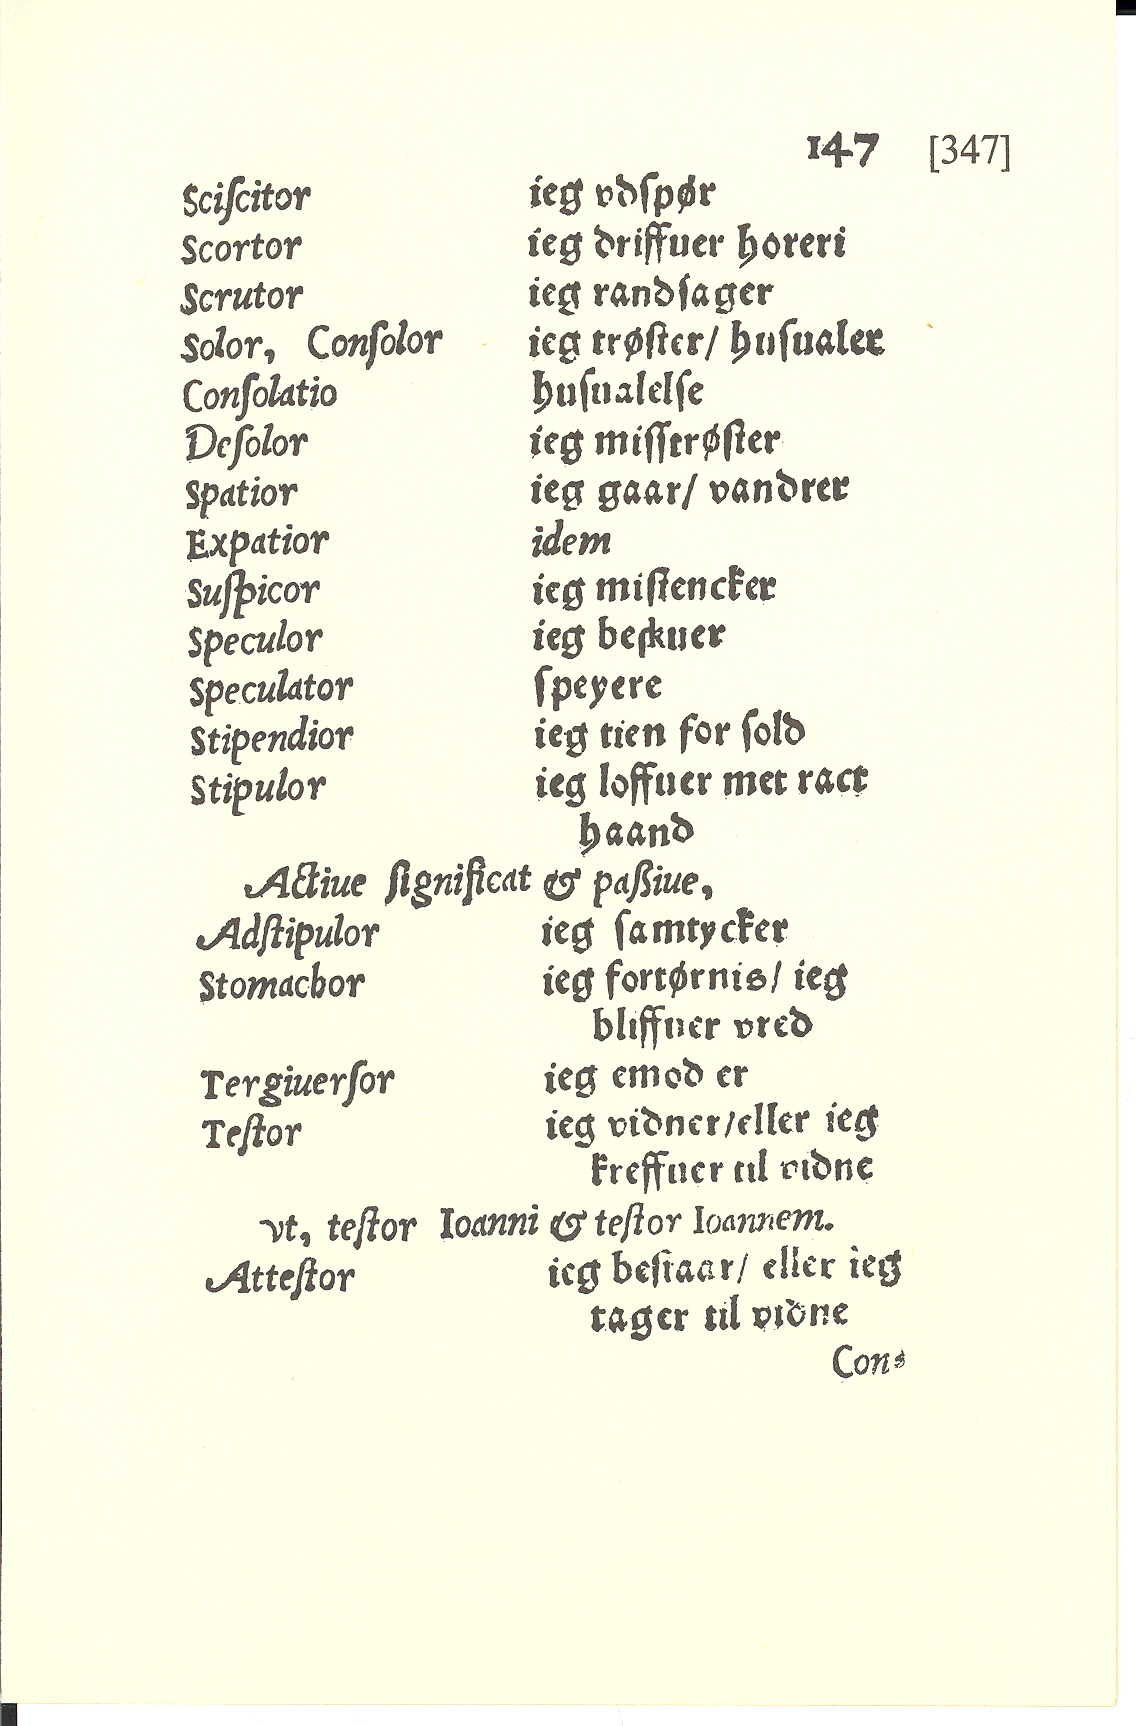 147 [347]
Sciſcitor ieg vdſpør
Scortor ieg driffuer horeri
Scrutor ieg randſager
Solor, Conſolor ieg trøſter/ huſualer
Conſolatio huſualelſe
Deſolor ieg miſſtrøſter
Spatior ieg gaar/ vandrer
Expatior idem
Suſpicor ieg miſtencker
Speculor ieg beſkuer
Speculator ſpeyere
Stipendior ieg tien for ſold
Stipulor ieg loffuer met ract
haand
Actiue ſignificat & paßiue,
Adſtipulor ieg ſamtycker
Stomachor ieg fortørnis/ ieg
bliffuer vred
Tergiuerſor ieg emod er
Teſtor ieg vidner/eller ieg
kreffuer til vidne
vt, teſtor Ioanni & teſtor Ioannem.
Atteſtor ieg beſtaar/ eller ieg
tager til vidne
Con⸗